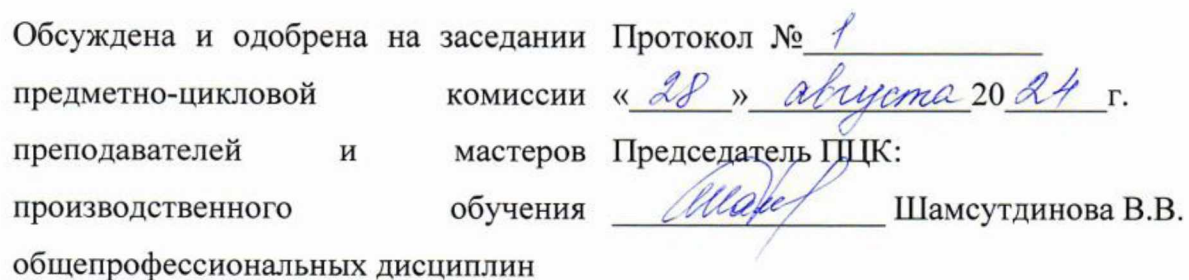 Обсуждена и одобрена на заседании
предметно-цикловой комиссии
преподавателей и мастеров
производственного обучения
общепрофессиональных дисциплин
Протокол № 1
« 28 » августа 20 24 г.
Председатель ПЦК:
Шамсутдинова В.В.